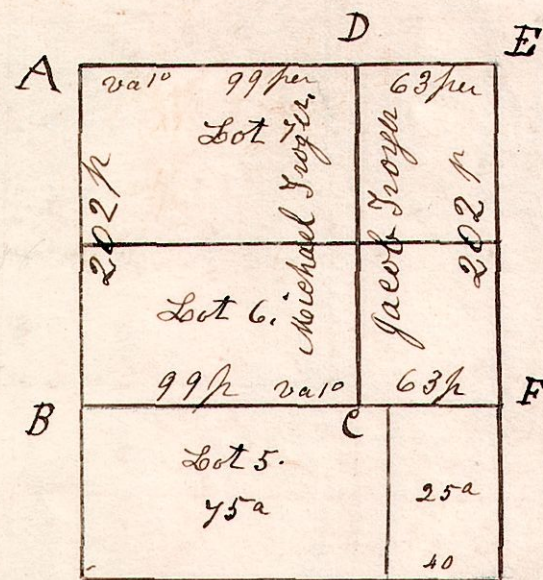 D
E
A
va 1° 99 per
63 per
Lot 7.
202 p
Michael Troyer.
Jacob Troyer
202 p
Lot 6.
99 p va 1°
63 p
B
C
F
Lot 5.
75 a
25 a
40